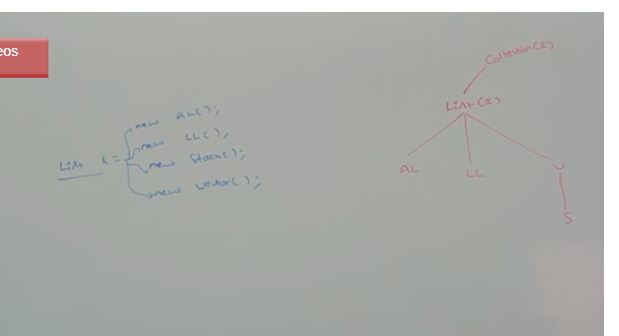 eos
new AL();
new LL();
List l =
new Stack();
new Vector();
Collection(I)
List(I)
AL
LL
V
S